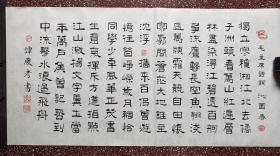 毛主席诗词 沁园春
獨立寒秋湘江北去橘
子洲頭看萬山紅遍層
林盡染漫江碧透百舸
爭流鷹擊長空魚翔淺
底萬類霜天競自由悵
寥廓問蒼茫大地誰主
沉浮 攜來百侣曾遊
憶往昔崢嶸歲月稠恰
同學少年風華正茂書
生意氣揮斥方遒指點
江山激揚文字糞土當
年萬戶侯曾記否到
中流擊水浪遏飛舟
慶孝書